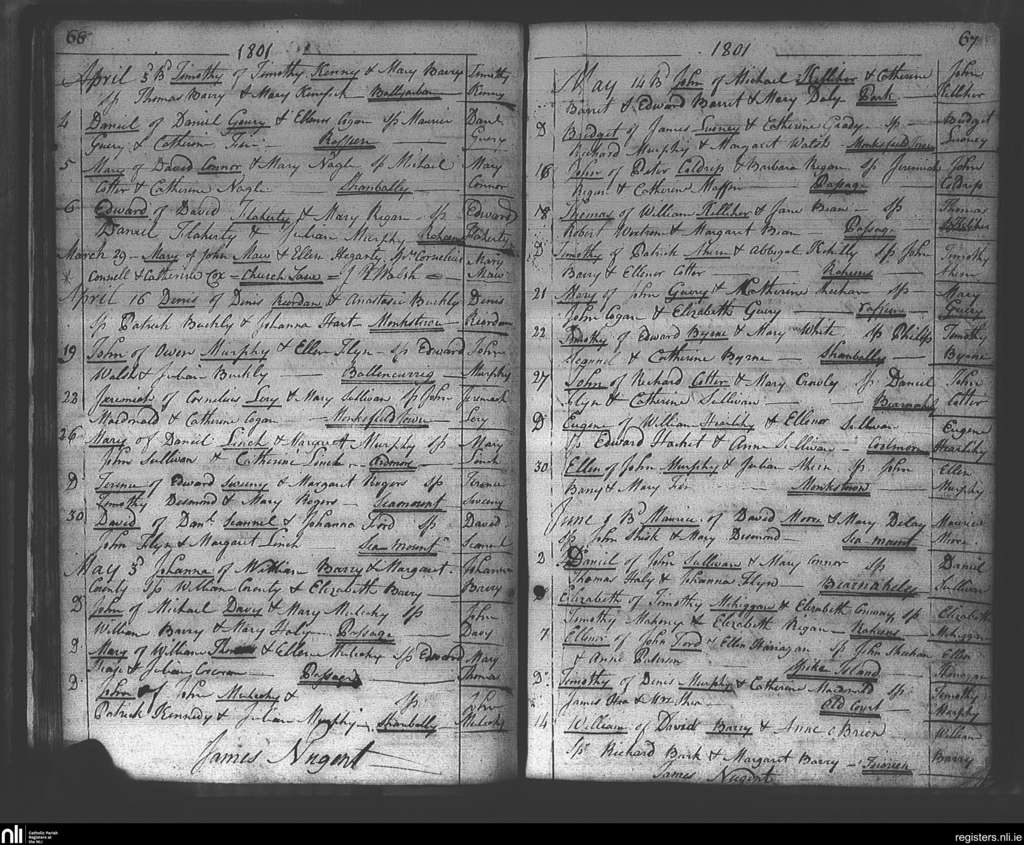 66
1801
April 3d Bd Timothy of Timothy Kenney & Mary Barry Timothy
Sp Thomas Barry & Mary Ballyorban Kinny
4 Daniel of Daniel Geury & Ellenor Cogan Sp Maurice Danl
Guery & Catherine Fir Raffeen Guery
5 Mary of David Connor & Mary Nagle Sp Michael Mary
Cotter & Catherine Nagle Shanbally Connor
6 Edward of David Flaherty & Mary Regan Sp Edward
Daniel Flaherty & Julian Murphy Flaherty
March 29 Mary of John Maw & Ellen Hegarty Sprs Cornelius Mary
Connell & Catherine Cox Church Lane J. Walsh Maw
April 16 Denis of Denis Reordan & Anastasia Buckly Denis
Sp Patrick Buckly & Johanna Hart Monkstown Reordan
19 John of Owen Murphy & Ellen Flyn Sp Edward John
Walsh & Julian Buckly Ballencurreg Murphy
23 Jeremiah of Cornelius Lery & Mary Sullivan Sp John Jeremiah
Macdonald & Catherine Cogan Monksfield Town Lery
26 Mary of Daniel Linch & Margaret Murphy Sp Mary
John Sullivan & Catherine Linch Ardmore Linch
D Terence of Edward Sweeny & Margaret Rogers Sp Terence
Timothy Desmond & Mary Rogers Seamount Sweeny
30 David of Danl Scannel & Johanna Ford Sp David
John Flyn & Margaret Linch Sea mount Scannel
May 3d Johanna of William Barry & Margaret Johanna
County Sp William County & Elizabeth Barry Barry
D John of Michael Davy & Mary Mulcahy Sp John
William Barry & Mary Haly Passage Davy
9 Mary of William & Ellen Mulcahy Sp Edward Mary
& Julian Corcoran Passage Thomas
D John of John Mulcahy & Sp John
Patrick Kennedy & Julian Murphy Shanbally Mulcahy
James Nugent
67
1801
May 14 Bd John of Michael Kelliher & Catherine John
Barrit & Edward Barrit & Mary Daly Park Kelliher
D Bridget of James Looney & Catherine Grady Sp Bridget
Richard Murphy & Margaret Walsh Monksfield Town Looney
16 of Peter Coldrip & Barbara Regan Sp Jeremiah John
Regan & Catherine Passage Coldrip
18 Thomas of William Kelliher & Jane Bean Sp Thomas
Robert & Margaret Bean Passage Kelliher
D Timothy of Patrick Ahern & Abbigal Sp John Timothy
Barry & Ellenor Cotter Raheens Ahern
21 Mary of John Geury & Catherine Sheehan Sp Mary
John Cogan & Elizabeth Geury Raffeen Geury
22 Timothy of Edward Byrne & Mary White Sp Philip Timothy
Scannel & Catherine Byrne Shanbally Byrne
27 John of Richard Cotter & Mary Crowly Sp Daniel John
Flyn & Catherine Sullivan Cotter
D Eugene of William Hearlihy & Ellenor Sullivan Eugene
Sp Edward Harket & Anne Sullivan Coolmore Hearlihy
30 Ellen of John Murphy & Julian Ahern Sp John Ellen
Barry & Mary Fir Monkstown Murphy
June 1 Bd Maurice of David Moore & Mary Delay Maurice
Sp John & Mary Desmond Sea mount Moore
2 Daniel of John Sullivan & Mary Connor Sp Daniel
Thomas Haly & Johanna Flyn Bearnahely Sullivan
Elizabeth of Timothy Mehiggan & Elizabeth Sp Elizabeth
Timothy Mahony & Elizabeth Regan Raheens Mehiggan
7 Ellenor of John Ford & Ellen Hanagan Sp John Sheehan Ellen
& Anne Peterson Spike Island
D Timothy of Denis Murphy & Catherine Macdonald Sp Timothy
James Shea & Mrs Shea Old Court Murphy
14 William of David Barry & Anne O Brien William
Sp Richard Burk & Margaret Barry Barry
James Nugent
nli
Catholic Parish
Registers at
the NLI
registers.nli.ie